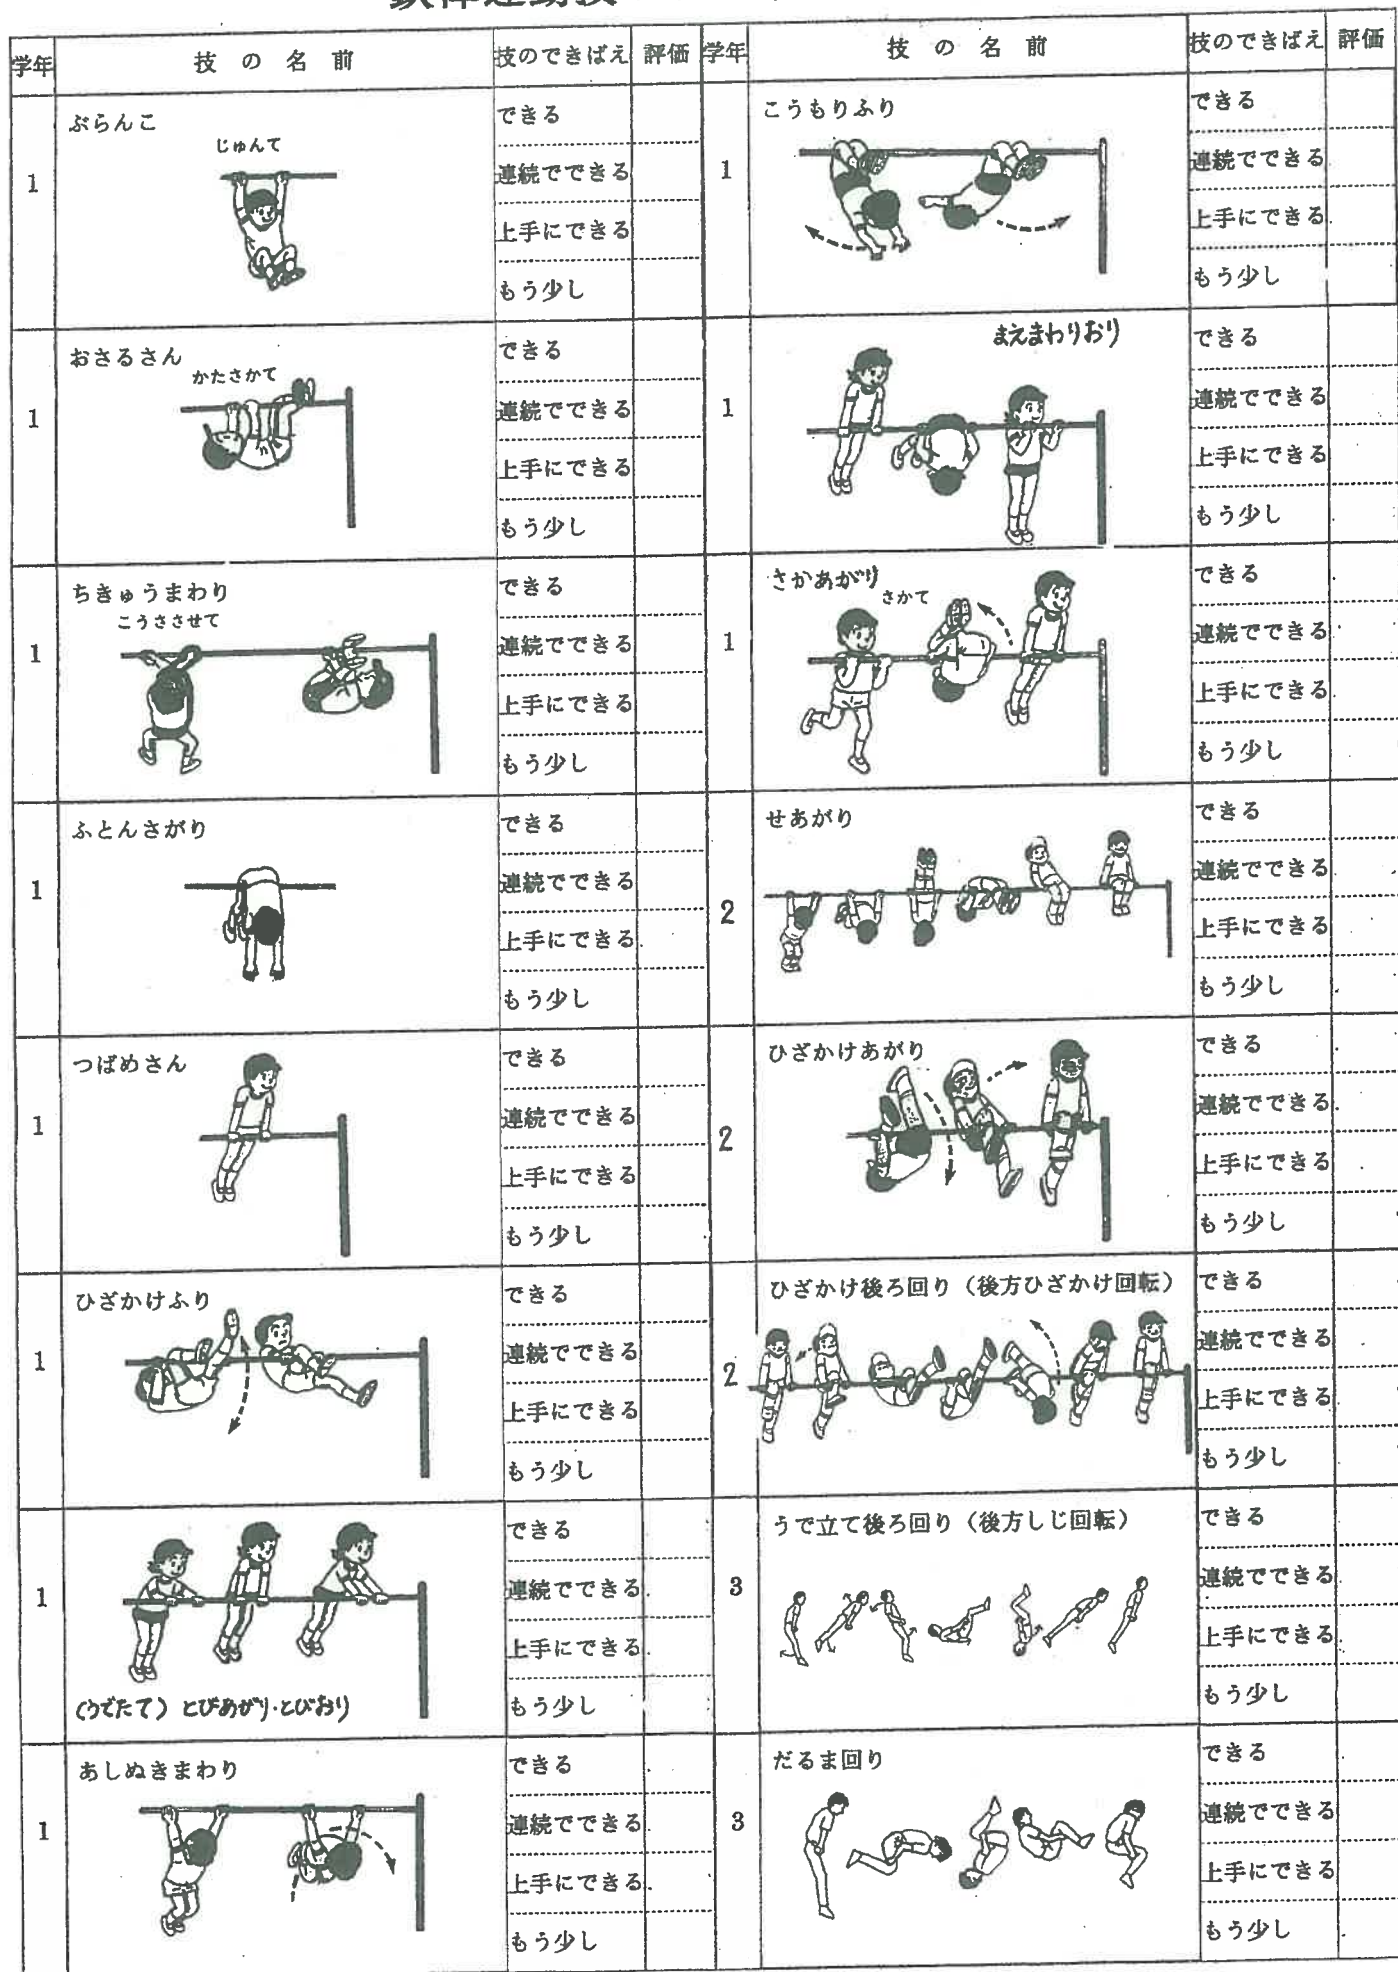 学年 技の名前 技のできばえ 評価 学年 技の名前 技のできばえ 評価
1
ぶらんこ
じゅんて
できる
連続でできる
上手にできる
もう少し
1
こうもりふり
できる
連続でできる
上手にできる
もう少し
1
おさるさん
かたさかて
できる
連続でできる
上手にできる
もう少し
1
まえまわりおり
できる
連続でできる
上手にできる
もう少し
1
ちきゅうまわり
こうさせて
できる
連続でできる
上手にできる
もう少し
1
さかあがり
さかて
できる
連続でできる
上手にできる
もう少し
1
ふとんさがり
できる
連続でできる
上手にできる
もう少し
2
せあがり
できる
連続でできる
上手にできる
もう少し
1
つばめさん
できる
連続でできる
上手にできる
もう少し
2
ひざかけあがり
できる
連続でできる
上手にできる
もう少し
1
ひざかけふり
できる
連続でできる
上手にできる
もう少し
2
ひざかけ後ろ回り（後方ひざかけ回転）
できる
連続でできる
上手にできる
もう少し
1
（うでたて）とびあがり・とびおり
できる
連続でできる
上手にできる
もう少し
3
うで立て後ろ回り（後方しじ回転）
できる
連続でできる
上手にできる
もう少し
1
あしぬきまわり
できる
連続でできる
上手にできる
もう少し
3
だるま回り
できる
連続でできる
上手にできる
もう少し